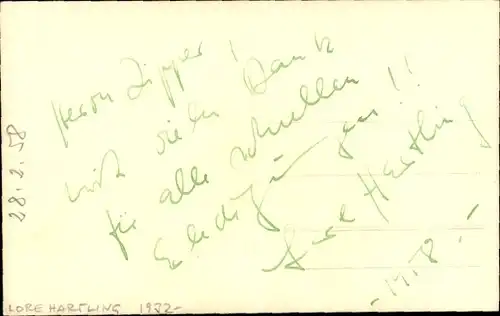 Herrn Zipper!
mit vielen Dank
für alle schnellen
Erledigungen!!
Lore Hartling
- 1958. -
28.2.58
LORE HARTLING 1932-